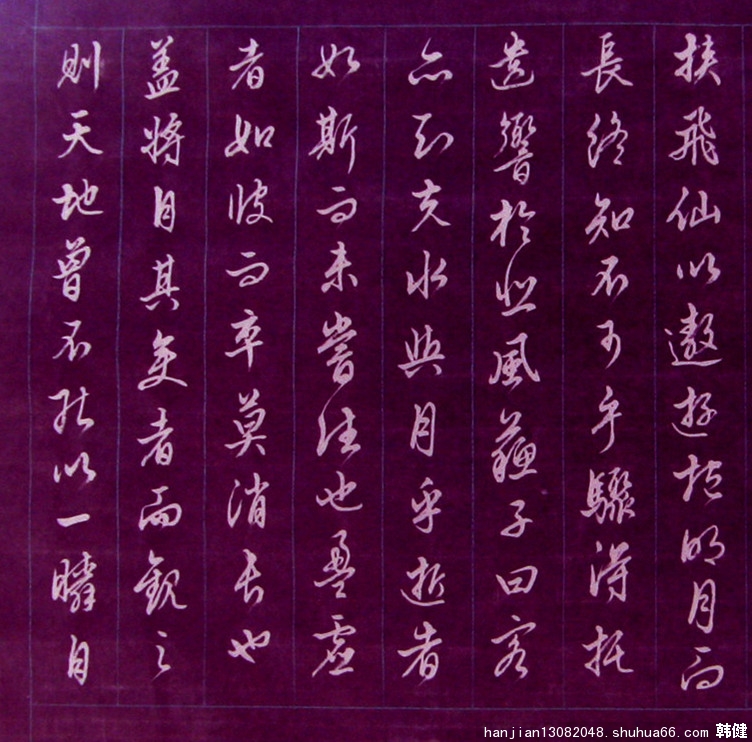 挾飛仙以遨遊抱明月而
長終知不可乎驟得托
遺響於悲風蘇子曰客
亦知夫水與月乎逝者
如斯而未嘗往也盈虛
者如彼而卒莫消長也
盖將自其變者而觀之
則天地曾不能以一瞬自
hanjian13082048.shuhua66.com 韩健